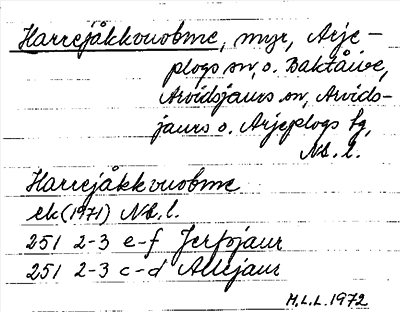 Harrejåkkvuobme, myr, Arje-
plogs sn, o. Baktåive,
Arvidsjaurs sn, Arvids-
jaurs o. Arjeplogs tg,
Nb. l.
Harrejåkkvuobme
ek (1971) Nb. l.
251 2-3 e-f Jerfojaur
251 2-3 c-d Allejaur
M.L.L. 1972